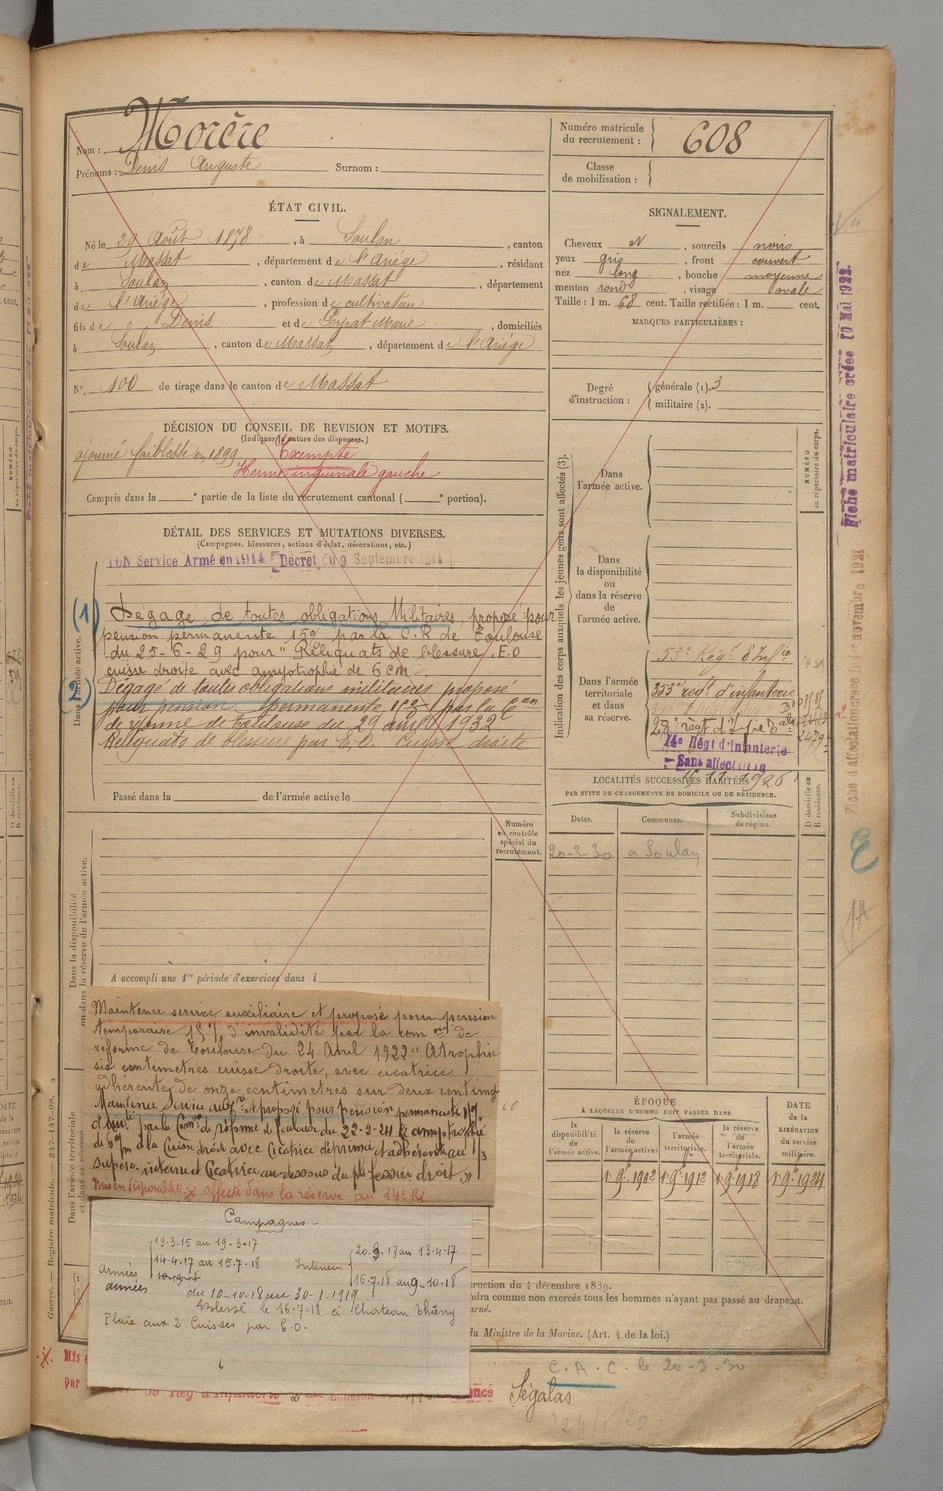 Nom : Morère
Prénoms : Denis Auguste Surnom :
Numéro matricule du recrutement : 608
Classe de mobilisation :
ÉTAT CIVIL.
Né le 29 Août 1878, à Soulan, canton
de Massat, département de l'Ariège, résidant
à Soulan, canton de Massat, département
de l'Ariège, profession de cultivateur
fils de Denis et de Marie, domiciliés
à Soulan, canton de Massat, département de l'Ariège
N° 100 de tirage dans le canton de Massat
SIGNALEMENT.
Cheveux N, sourcils noirs
yeux gris, front couvert
nez long, bouche moyenne
menton rond, visage ovale
Taille : 1 m. 68 cent. Taille rectifiée : 1 m. cent.
MARQUES PARTICULIÈRES :
Degré d'instruction : générale (1). 3
militaire (2).
DÉCISION DU CONSEIL DE REVISION ET MOTIFS.
(Indiquer la nature des dispenses.)
ajourné faiblesse en 1899 Exempté
Hernie inguinale gauche
Compris dans la e partie de la liste du recrutement cantonal ( e portion).
DÉTAIL DES SERVICES ET MUTATIONS DIVERSES.
(Campagnes, blessures, actions d'éclat, décorations, etc.)
Service Armé en 1914 Décret du 9 Septembre 1914
(1) Dégagé de toutes obligations Militaires, proposé pour
pension permanente 15% par la C.R. de Toulouse
du 25-6-29 pour "Reliquats de blessure E.O
cuisse droite avec amyotrophie de 6 cm
(2) Dégagé de toutes obligations militaires proposé
pour pension permanente par la Con
de réforme de Toulouse du 29 avril 1932
Reliquats de blessure par E.O. Cuisse droite
Passé dans la de l'armée active le
Dans l'armée active.
Indication des corps auxquels les jeunes gens sont affectés (3).
Dans l'armée active.
Dans la disponibilité ou dans la réserve de l'armée active.
Dans l'armée territoriale et dans sa réserve.
NUMÉRO au répertoire du corps.
53e Régt d'Infie
353e régt d'infanterie
14e Régt d'Infanterie
Sans affectation
1926
LOCALITÉS SUCCESSIVES HABITÉES
PAR SUITE DE CHANGEMENTS DE DOMICILE OU DE RÉSIDENCE.
Dates. Communes. Subdivisions de région. D domicile ou R résidence.
20-3-30 à Soulan
Numéro au contrôle spécial du recrutement.
Dans la disponibilité ou dans la réserve de l'armée active.
A accompli une 1re période d'exercices dans l
Maintenu service auxiliaire et proposé pour pension
temporaire 15% d'invalidité par la comon de
réforme de Toulouse du 24 Avril 1922 "Atrophie
six centimètres cuisse droite, avec cicatrice
adhérente de onze centimètres sur deux centim
Maintenu Service auxre et proposé pour pension permanente
par la Comon de réforme de Toulouse du 22-2-24
de 6cm à la Cuisse droite avec Cicatrice déprimée et adhérente au
supero-interne et Cicatrice au-dessous du pli fessier droit"
Mis en disponibilité affecté dans la réserve au 14e RI
Campagnes
19-3-15 au 19-3-17
14-4-17 au 15-7-18
Intérieur
20.3.17 au 13-4-17
16-7-18 au 9-10-18
Armées
du 10-10-18 au 30-1-1919
Blessé le 16-7-18 à Chateau Thierry
Plaie aux 2 Cuisses par E.O.
Dans l'armée territoriale et dans sa réserve
ÉPOQUE
À LAQUELLE L'HOMME DOIT PASSER DANS
la disponibilité de l'armée active.
la réserve de l'armée active.
l'armée territoriale.
la réserve de l'armée territoriale.
DATE de la LIBÉRATION du service militaire.
1 9e 1902 1 9e 1912 1 9e 1918 1 9e 1924
truction du 4 décembre 1889.
ndra comme non exercés tous les hommes n'ayant pas passé au drapeau.
u Ministre de la Marine. (Art. 4 de la loi.)
C.A.C. le 20-3-30
Ségalas
Mis e
par
Guerre. — Registre matricule. — 237-147-98.
Fiche matriculaire créée 10 Mai 1922.
Fiche d'affectation créée 1er novembre 1921